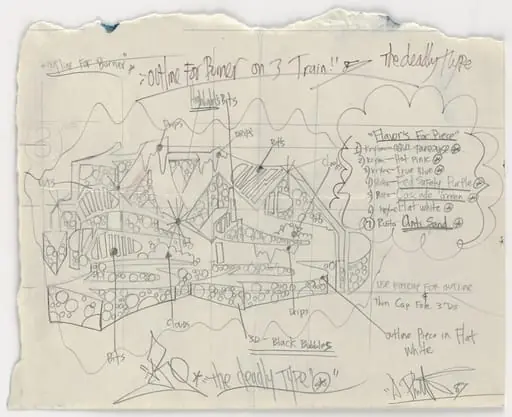 "outline For Burner"
"Outline For Burner on 3 Train!!"
the deadly Type
Highlights Bits
Drips
Drips
Bits
Clouds
Cuts
"Flavor's For Piece"
1) Krylon
2) Krylon - Hot Pink
3) Krylon - True Blue
4) Rusto - Fed Safety Purple
5) Rusto - Cascade Green
6) Flat white
7) Rusto Anti Sand
use for outline
Thin Cap For 3-D's
outline Piece in Flat
White
Drips
Clouds
3D - Black Bubbles
Bits
"the deadly Type"